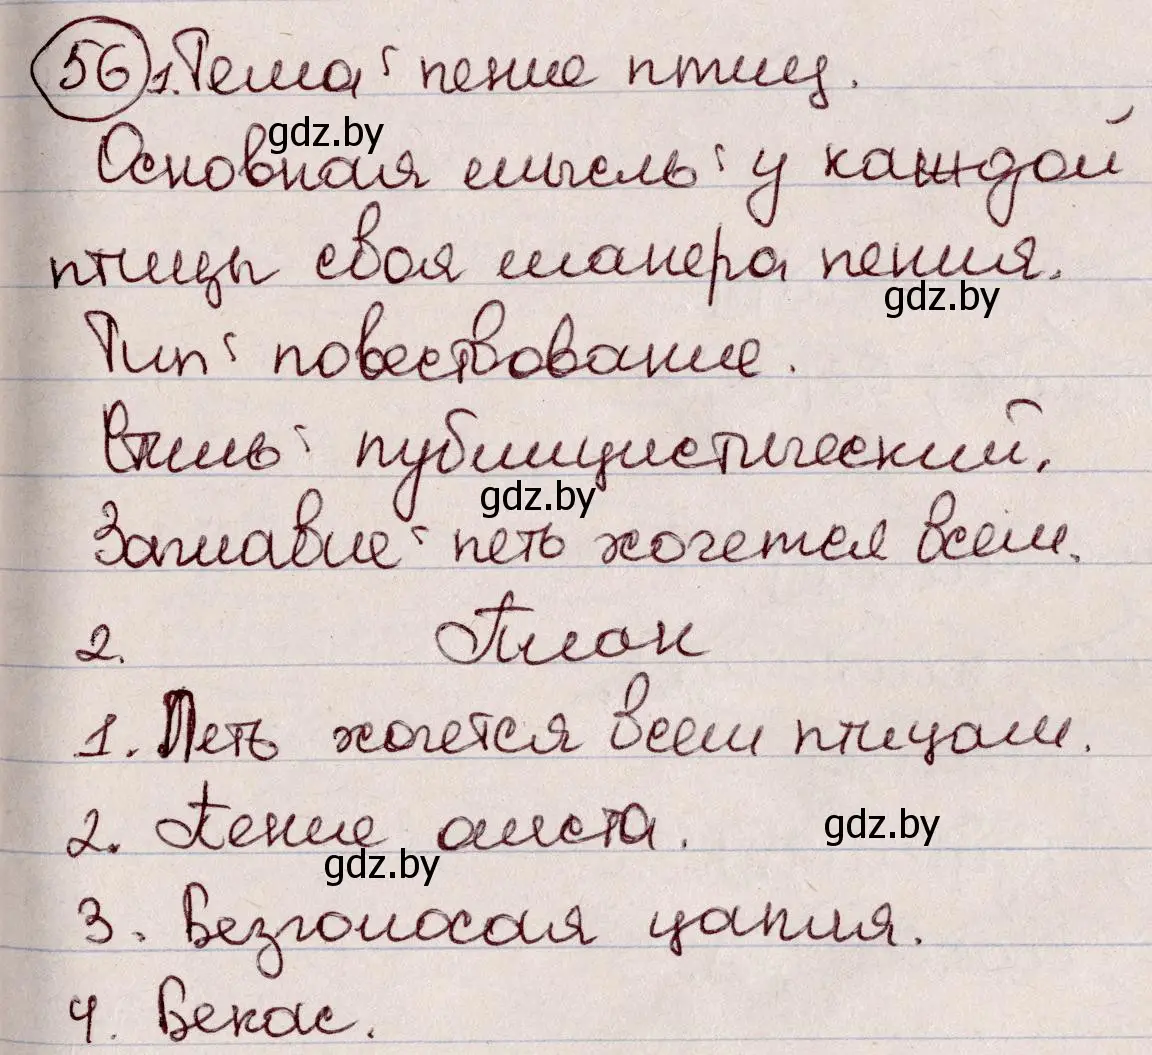 56 1. Тема: пение птиц.
gdz.by
Основная мысль: у каждой
птицы своя манера пения.
gdz.by
Тип: повествование.
Стиль: публицистический.
gdz.by
Заглавие: петь хочется всем.
2. План
1. Петь хочется всем птицам.
2. Пение аиста.
gdz.by
gdz.by
3. Безголосая цапля.
4. Бекас.